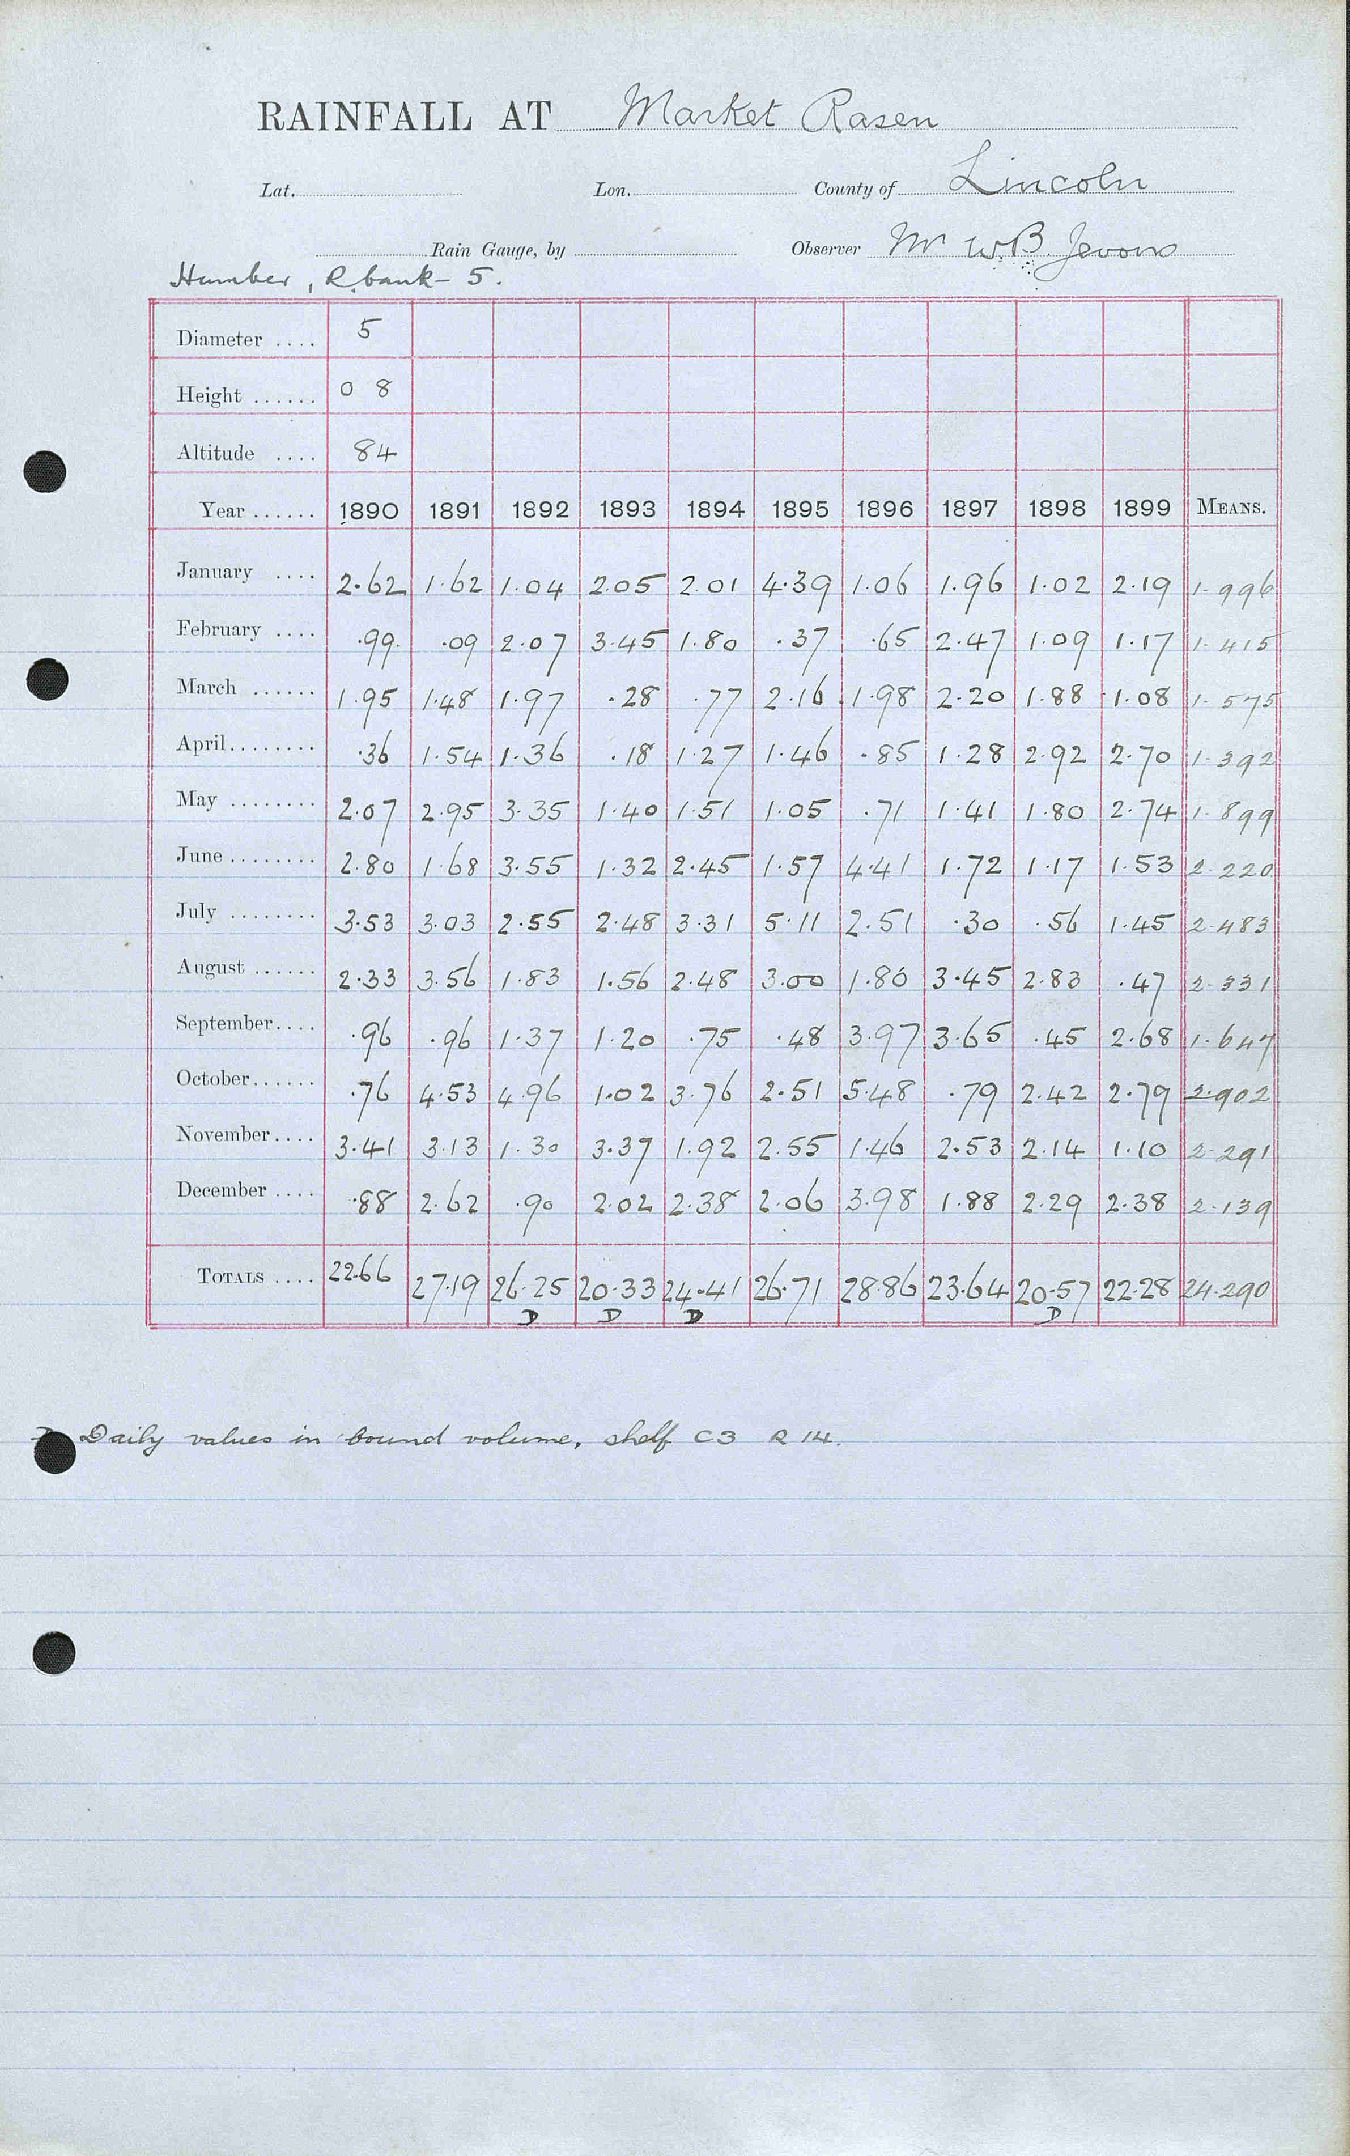 RAINFALL AT Market Rasen
Lat. Lon. County of Lincoln
Rain Gauge, by Observer Mr W.B. Jevons
Humber, R. bank - 5.
Diameter .... 5
Height ...... 0 8
Altitude .... 84
Year ...... 1890 1891 1892 1893 1894 1895 1896 1897 1898 1899 MEANS.
January .... 2.62 1.62 1.04 2.05 2.01 4.39 1.06 1.96 1.02 2.19 1.996
February .... .99 .09 2.07 3.45 1.80 .37 .65 2.47 1.09 1.17 1.415
March ...... 1.95 1.48 1.97 .28 .77 2.16 1.98 2.20 1.88 1.08 1.575
April ........ .36 1.54 1.36 .18 1.27 1.46 .85 1.28 2.92 2.70 1.392
May ........ 2.07 2.95 3.35 1.40 1.51 1.05 .71 1.41 1.80 2.74 1.899
June ........ 2.80 1.68 3.55 1.32 2.45 1.57 4.41 1.72 1.17 1.53 2.220
July ........ 3.53 3.03 2.55 2.48 3.31 5.11 2.51 .30 .56 1.45 2.483
August ...... 2.33 3.56 1.83 1.56 2.48 3.00 1.80 3.45 2.83 .47 2.331
September .... .96 .96 1.37 1.20 .75 .48 3.97 3.65 .45 2.68 1.647
October ...... .76 4.53 4.96 1.02 3.76 2.51 5.48 .79 2.42 2.79 2.902
November .... 3.41 3.13 1.30 3.37 1.92 2.55 1.46 2.53 2.14 1.10 2.291
December .... .88 2.62 .90 2.02 2.38 2.06 3.98 1.88 2.29 2.38 2.139
TOTALS .... 22.66 27.19 26.25 20.33 24.41 26.71 28.86 23.64 20.57 22.28 24.290
D D D D
Daily values in bound volume, shelf C3 R 14.